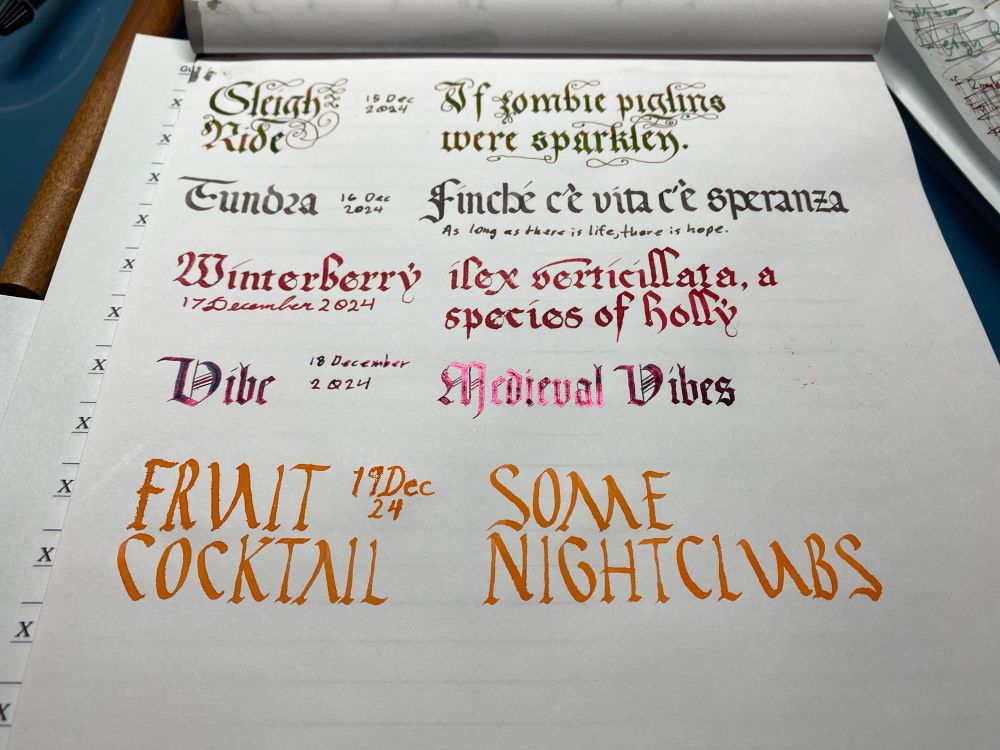 Sleigh
Ride
15 Dec
2024
If zombie piglins
were sparkley.
Tundra
16 Dec
2024
Finché c'è vita c'è speranza
As long as there is life, there is hope.
Winterberry
17 December 2024
ilex verticillata, a
species of holly
Vibe
18 December
2024
Medieval Vibes
FRUIT
COCKTAIL
19 Dec
24
SOME
NIGHTCLUBS
X
X
X
X
X
X
X
X
X
X
X
X